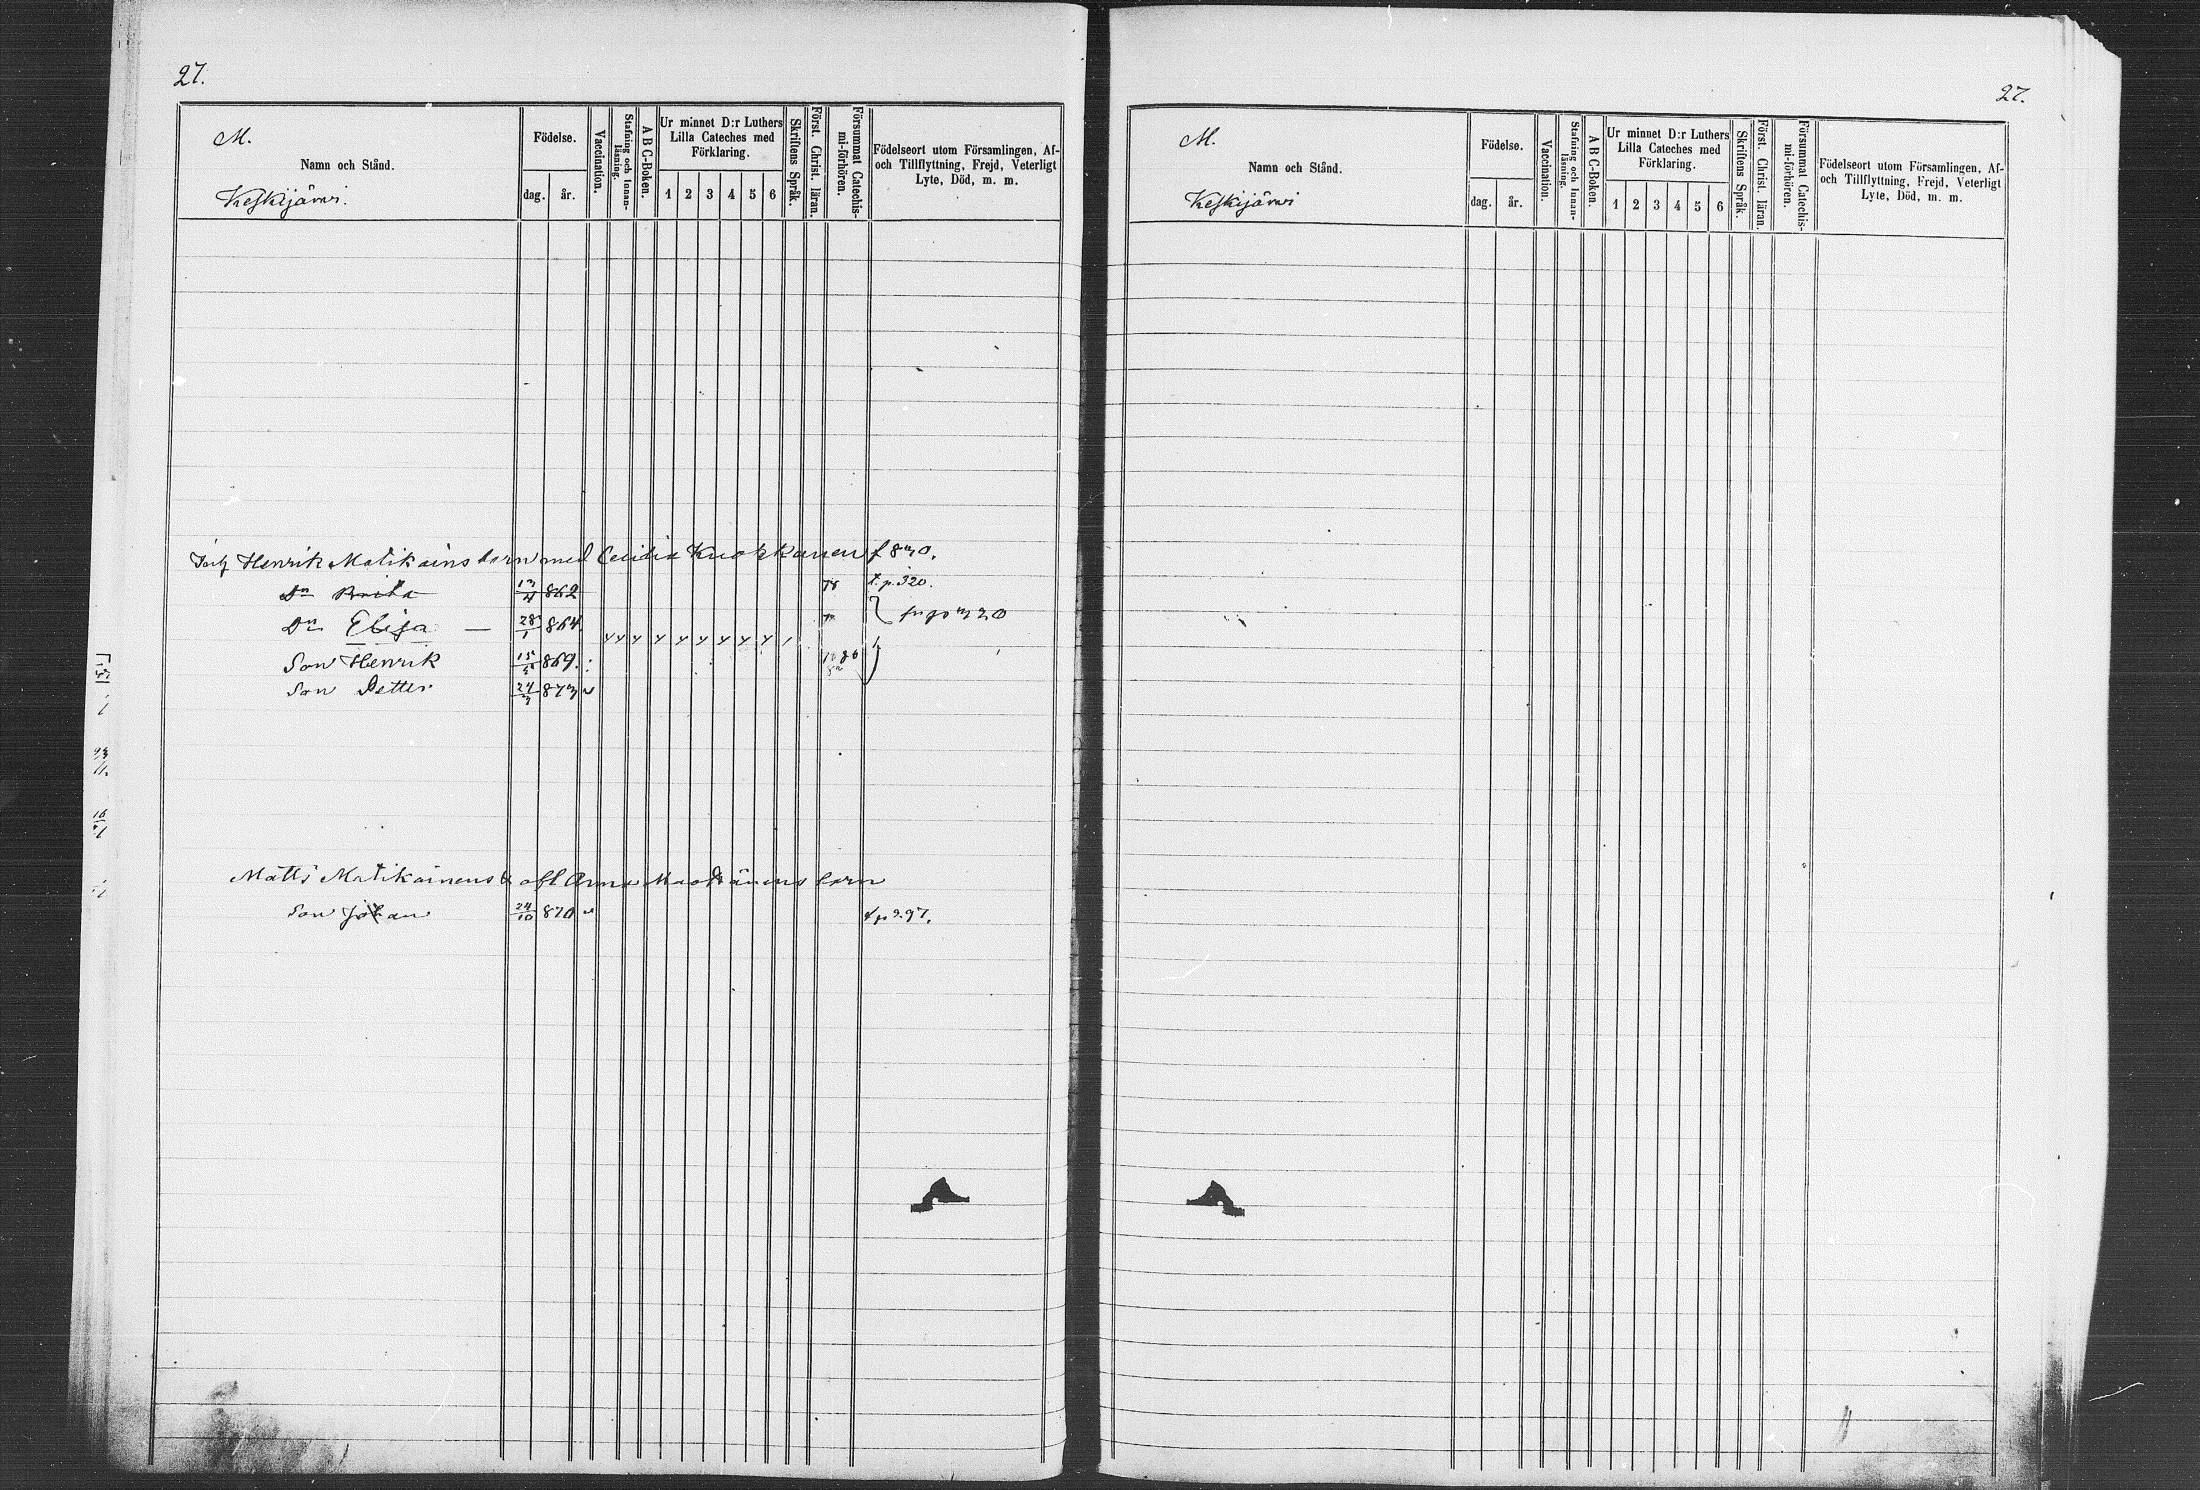 27.
M.
Namn och Stånd.
Keskijärvi.
Födelse.
dag. år.
Vaccination.
Stafning och Innanläsning.
A B C-Boken.
Ur minnet D:r Luthers
Lilla Cateches med
Förklaring.
1 2 3 4 5 6
Skriftens Språk.
Först. Christ. läran.
Försummat Catechis-
mi-förhören.
Födelseort utom Församlingen, Af-
och Tillflyttning, Frejd, Veterligt
Lyte, Död, m. m.
Henrik Matikains barn med Cecilia Kuokkanen
Dr Brita 862 78 p. 320.
Dr Elisa — 28/1 864
Son Henrik 15 869.
Son Petter 24 873
Matts Matikainens & afl Anna barn
Son Johan 24/10 870
27.
M.
Namn och Stånd.
Keskijärvi
Födelse.
dag. år.
Vaccination.
Stafning och Innan-
läsning.
A B C-Boken.
Ur minnet D:r Luthers
Lilla Cateches med
Förklaring.
1 2 3 4 5 6
Skriftens Språk.
Först. Christ. läran.
Försummat Catechis-
mi-förhören.
Födelseort utom Församlingen, Af-
och Tillflyttning, Frejd, Veterligt
Lyte, Död, m. m.